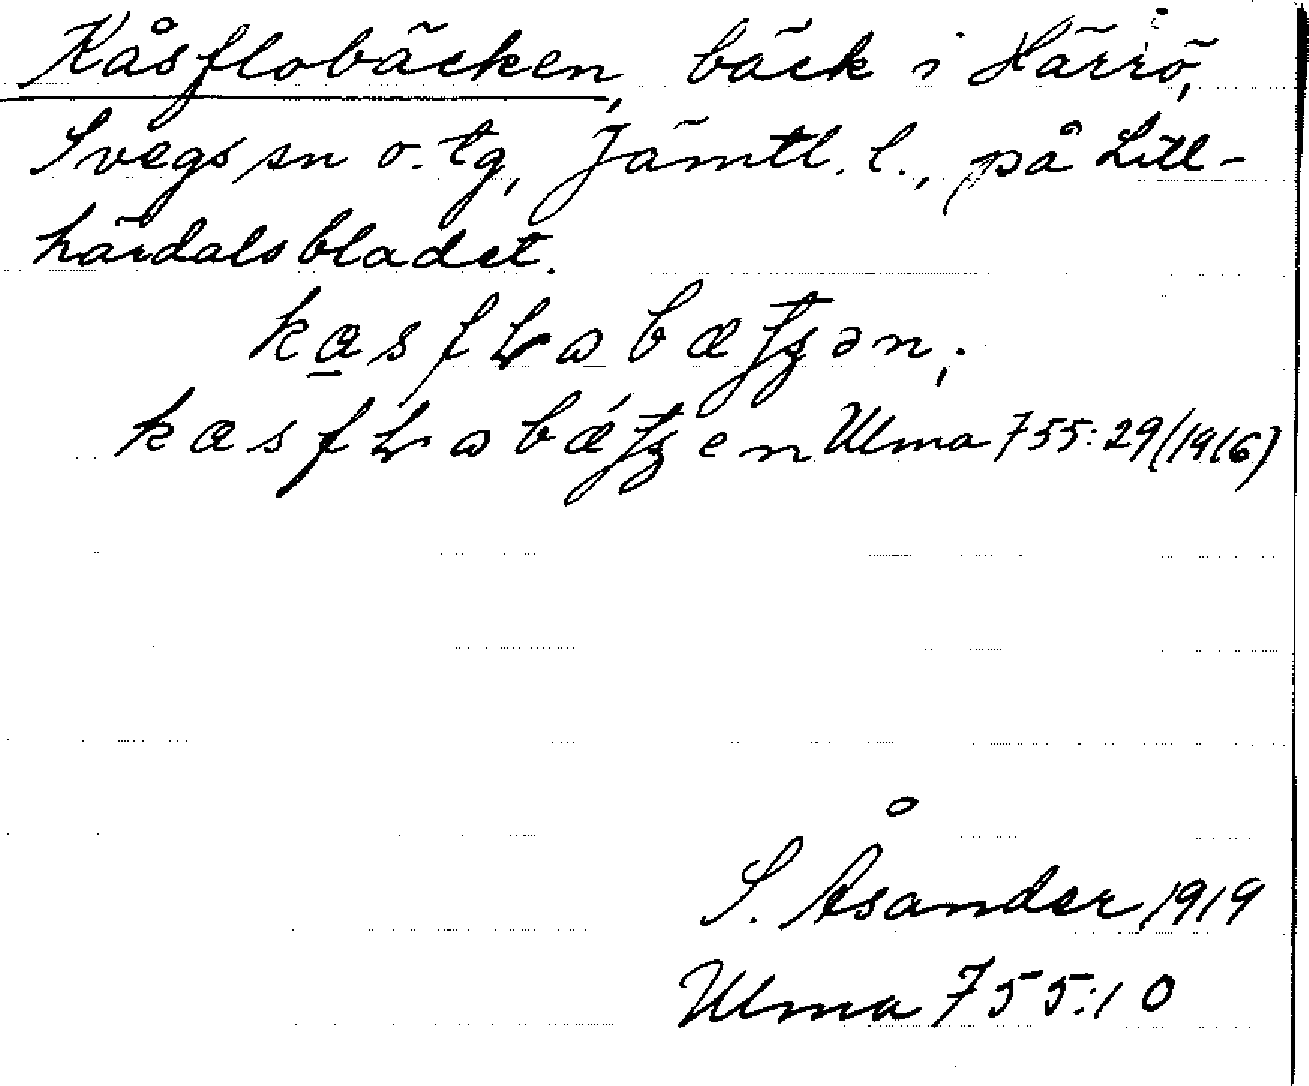 Kåsflobäcken, bäck i Härrö,
Svegs sn o. tg, Jämtl. l., på Lill-
härdalsbladet.
Ulma 755:29 (1916)
S. Åsander 1919
Ulma 755:10